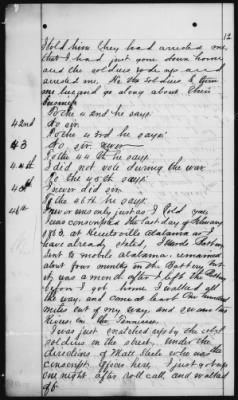 12
I told him they had arrested me
that I had just gone down home
and the soldiers rode up and
arrested me. He the soldiers to turn
me loose and go along about their
business
To the 42nd he says.
42nd
No sir.
To the 43rd he says
43
No sir, never
To the 44th he says.
44th
I did not vote during the war
To the 45th he says.
45th
I never did sir.
To the 46th he says.
46th
I never was only just as I told you
was conscripted the last day of February
1863. at Huntsville Alabama as I
have already stated, I
sent to mobile alabama, remained
about four months in the Battery
it was a month after I left the Battery
before I got home I walked all
the way, and came at least one hundred
miles out of my way, and swam two
rivers in the Tennessee.
I was just snatched up by the
soldiers in the street, under the
directions of Matt Steele who was the
conscript officer here, I just got up
one night after roll call, and walked
off.